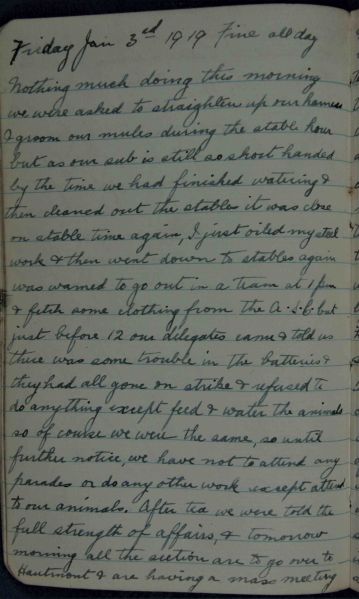 Friday Jan 3rd 1919 Fine all day
Nothing much doing this morning
we were asked to straighten up our harness
& groom our mules during the stable hour
but as our sub is still so short handed
by the time we had finished watering &
then cleaned out the stables it was close
on stable time again, I just oiled my steel
work & then went down to stables again
was warned to go out in a team at 1 pm
& fetch some clothing from the A.S.C. but
just before 12 our diligates came & told us
there was some trouble in the batteries &
they had all gone on strike & refused to
do anything except feed & water the animals
so of course we were the same, so until
further notice, we have not to attend any
parades or do any other work except attend
to our animals. After tea we were told the
full strength of affairs, & tomorrow
morning all the section are to go over to
Hautmont & are having a mass meeting